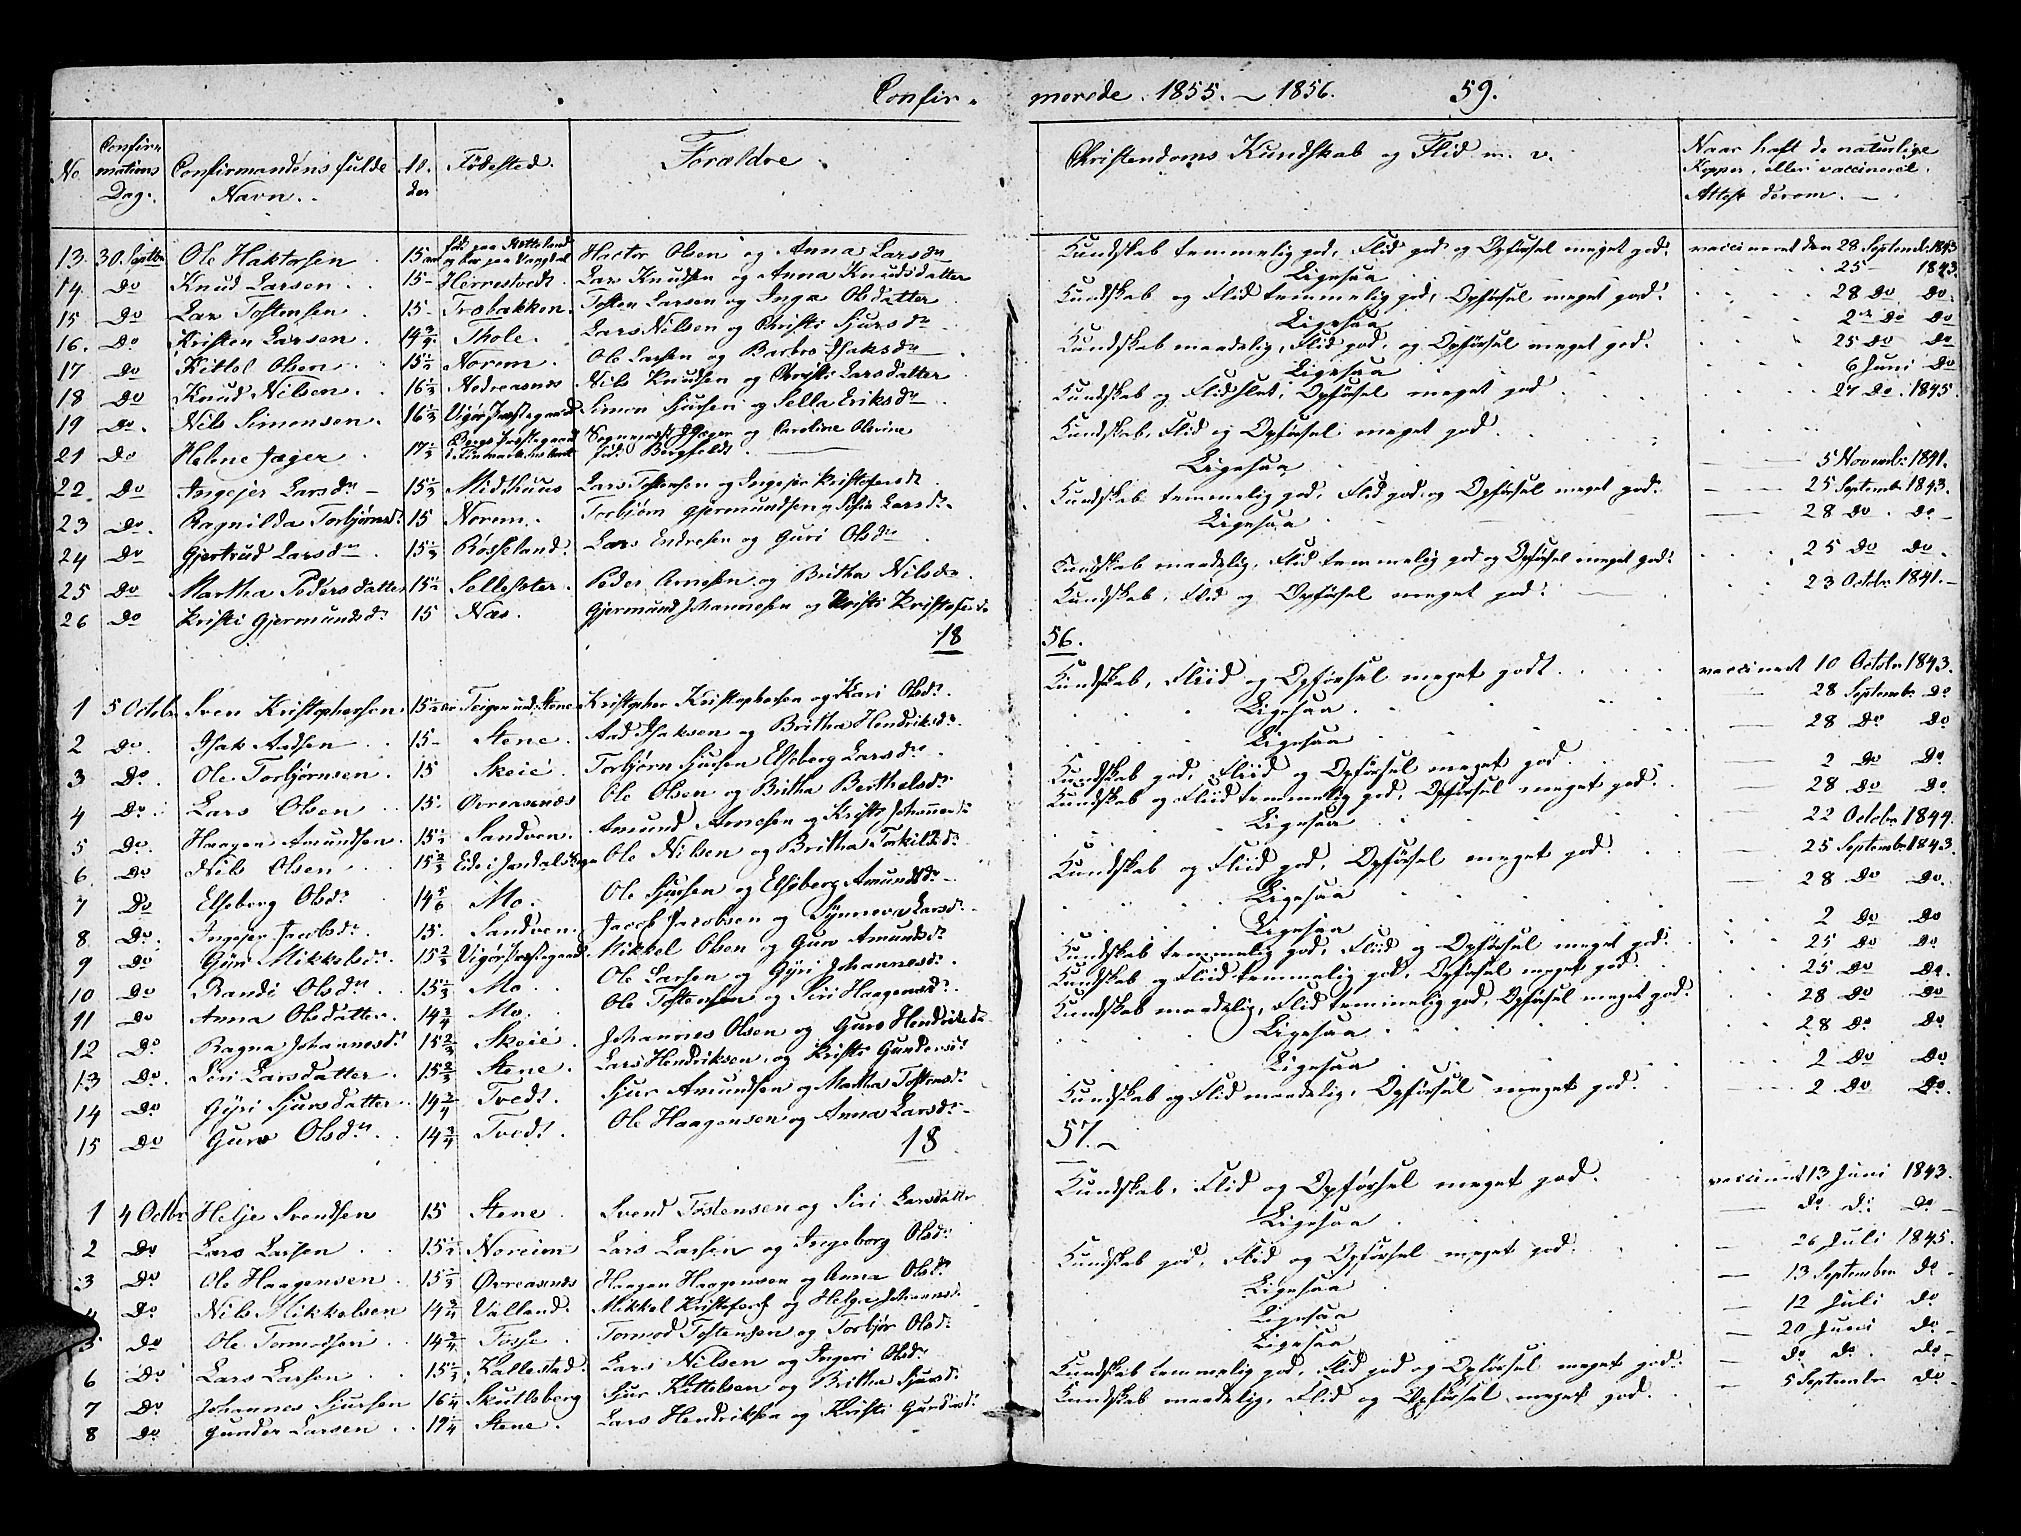 Confir- merede. 1855. - 1856. 59.
No Confirmations Dag. Confirmandens fulde Navn. Alder Fødested. Forældre. Christendoms Kundskab og Flid m. v. Naar haft de naturlige Kopper, eller vaccineret. Attest derom.
13. 30. Septbr Ole Haktorsen 15 Hactor Olsen og Anna Larsdr Kundskab temmelig god, Flid god og Opførsel meget god. vaccineret den 28 Septembr 1843
14. Do Knud Larsen 15 Herrestvedt Lars Knudsen og Anna Knudsdatter Ligesaa 25 - 1843.
15 Do Lars Tostensen 15 Træbakken Tosten Larsen og Inga Olsdatter Kundskab og Flid temmelig god, Opførsel meget god. 28 Do Do
16. Do Kristen Larsen 14 3/4 Thole. Lars Nilsen og Kristi Sjursdr Ligesaa 2 Do Do
17 Do Kittel Olsen 15 1/2 Norem. Ole Larsen og Barbro Isaksdr Kundskab maadelig, Flid god, og Opførsel meget god. 25 Do Do
18 Do Knud Nilsen 16 1/3 Nedreasnæs Nils Knudsen og Kristi Larsdatter Ligesaa 6 Juni Do
19 Do. Nils Simonsen. 16 1/3 Vigør Præstegaard Simon Sjursen og Sella Eriksdr Kundskab og Flid slet, Opførsel meget god 27 Do. 1845
21 Do Helene Jæger 17 1/3 Jæger og Caroline Olevine Kundskab, Flid og Opførsel meget god
22. Do Ingejer Larsdr 15 1/3 Midthuus Lars Tostensen og Ingejer Kristofersdr Ligesaa 5 Novembr 1841.
23 Do. Ragnilda Torbjørnsdr 15 Norem. Torbjørn Gjermundsen og Sofia Larsdr Kundskab temmelig god, Flid god, og Opførsel meget god. 25 Septembr 1843.
24 Do Gjertrud Larsdr 15 1/3 Røsseland. Lars Endresen og Guri Olsdr Ligesaa 28 Do. Do
25 Do Martha Pedersdatter 15 1/2 Sellesæter Peder Arnesen og Britha Nilsdr Kundskab maadelig, Flid temmelig god og Opførsel meget god. 25 Do Do.
26 Do Kristi Gjermundsdr 15 Næs. Gjermund Johannesen og Kristi Kristofersdr Kundskab, Flid og Opførsel meget god. 23 Octobr 1841.
18 56.
1 5 Octobr Sven Kristophersen 15 1/2 Kristopher Kristophersen og Kari Olsdr. Kundskab, Fliid og Opførsel meget godt. vaccineret 10 Octobr 1843.
2 Do. Isak Aadsen 15 Stene. Aad Isaksen og Britha Hendriksdr Ligesaa 28 Septembr Do
3 Do. Ole Torbjørnsen. 15 Skeie. Torbjørn Sjursen Elseberg Larsdr. Ligesaa 28 Do Do
4 Do. Lars Olsen 15. Øvreasnæs Ole Olsen og Britha Berthelsdr Kundskab god, Fliid og Opførsel meget god. 2 Do Do
5 Do. Haagen Amundsen. 15 1/2 Sandven. Amund Arnesen og Kristi Johannesdr Kundskab og Fliid temmelig god, Opførsel meget god. 28 Do Do
6. Do Nils Olsen 15 2/3 Eide i Jondal Ole Nilsen og Britha Torkildsdr. Ligesaa 22 Octobr 1844.
7 Do Elseberg Olsdr 14 5/6 Mo. Ole Sjursen og Elseberg Amundsdr Kundskab og Fliid god, Opførsel meget god. 25 Septembr 1843.
8 Do. Ingejer Jacobsdr. 15. Sandven. Jacob Jacobsen og Synneva Larsdr Ligesaa 28 Do Do.
9 Do Gyri Mikkelsdr. 15 2/3 Vigør Præstegaard Mikkel Olsen og Guro Amundsdr Ligesaa 2 Do Do
10 Do Randi Olsdr 15 1/3 Mo. Ole Larsen og Gyri Johannesdr. Kundskab temmelig god, Fliid og Opførsel meget god. 25 Do Do
11 Do Anna Olsdatter. 14 3/4 Mo. Ole Tostensen og Siri Haagensdr. Kundskab og Fliid temmelig god, Opførsel meget god. 25 Do Do.
12 Do Ragna Johannesdr 15 2/3 Skeie. Johannes Olsen og Guro Hendriksdr Kundskab maadelig, Flid temmelig god, Opførsel meget god. 28 Do Do
13 Do. Siri Larsdatter. 15 2/3 Stene. Lars Hendriksen og Kristi Gundersdr Ligesaa 28 Do Do
14 Do Gyri Sjursdatter 14 2/4 Tvedt. Sjur Amundsen og Martha Tostensdr. Ligesaa 2 Do Do
15 Do Guro Olsdr. 14 3/4 Tvedt. Ole Haagensen og Anna Larsdr. Kundskab og Flid maadelig, Opførsel meget god. 2 Do Do.
18 57.
1 4 Octbr Helje Svendsen 15 Stene Svend Tostensen og Siri Larsdatter Kundskab, Flid og Opførsel meget god. vaccineret 13 Juni 1843.
2 Do Lars Larsen 15 1/2 Noreim Lars Larsen og Ingeborg Olsdr. Ligesaa Do Do Do
3 Do Ole Haagensen 15 1/3 Øvreasnæs Haagen Haagensen og Anna Olsdr. Kundskab god, Flid og Opførsel meget god. 26 Juli 1845.
4 Do. Nils Mikkelsen 14 3/4 Valland. Mikkel Kristofers og Helga Johannesdr. Ligesaa 13 Septembr Do
5 Do Ole Tormodsen 14 3/4 Fosse Tormod Tostensen og Torbjør Olsdr. Ligesaa 12 Juli Do
6 Do. Lars Larsen 15 1/3 Kallestad. Lars Nilsen og Ingeri Olsdr Ligesaa 20 Juni Do
7 Do. Johannes Sjursen 16 1/4 Skutleberg Sjur Kittelsen og Britha Sjursdr Kundskab temmelig god, Flid god og Opførsel meget god. Do Do. Do
8 Do. Gunder Larsen 19 1/4 Stene. Lars Hendriksen og Kristi Gundersdr. Kundskab maadelig, Flid og Opførsel meget god. 5 Septembr Do